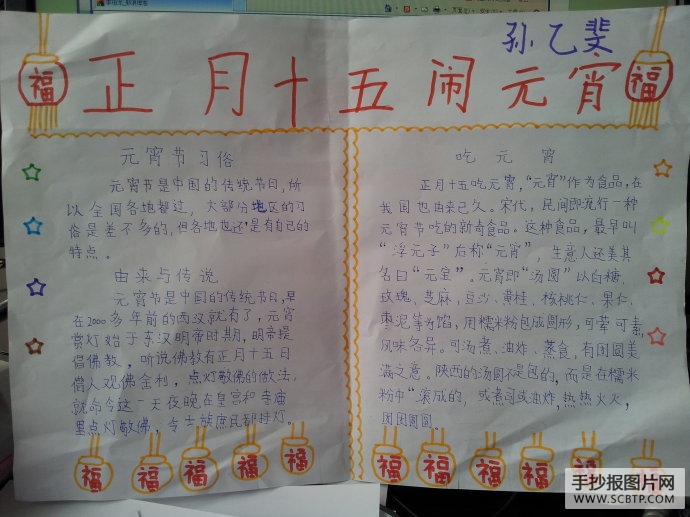 孙乙斐
正月十五闹元宵
福
福
元宵节习俗
元宵节是中国的传统节日,所
以全国各地都过,大部份地区的习
俗是差不多的,但各地也还是有自己的
特点。
由来与传说
元宵节是中国的传统节日,早
在2000多年前的西汉就有了,元宵
赏灯始于东汉明帝时期,明帝提
倡佛教,听说佛教有正月十五日
僧人观佛舍利,点灯敬佛的做法,
就命令这一天夜晚在皇宫和寺庙
里点灯敬佛,令士族庶民都挂灯。
吃元宵
正月十五吃元宵,“元宵”作为食品,在
我国也由来已久。宋代,民间即流行一种
元宵节吃的新奇食品。这种食品,最早叫
“浮元子”后称“元宵”,生意人还美其
名曰“元宝”。元宵即“汤圆”以白糖、
玫瑰、芝麻,豆沙、黄桂,核桃仁、果仁、
枣泥等为馅,用糯米粉包成圆形,可荤可素,
风味各异。可汤煮、油炸、蒸食,有团圆美
满之意。陕西的汤圆不是包的,而是在糯米
粉中“滚成的,或煮司或油炸,热热火火,
团团圆圆。
福 福 福 福 福
福 福 福 福 福
手抄报图片网
WWW.SCBTP.COM